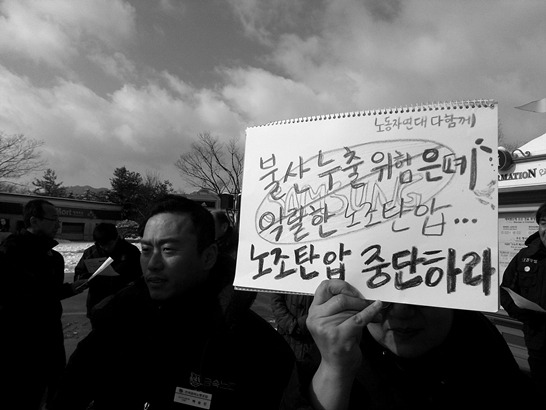 노동자연대 다함께
불산누출 위험은폐
SAMSUNG
악랄한 노조탄압...
노조탄압 중단하라
MATION